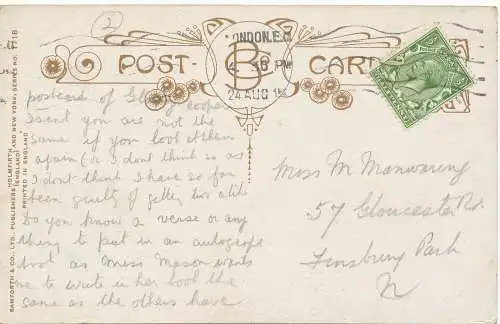 2
LONDON. E.C.
POST CARD
B
24 AUG
postcard of Gladys Cooper
I sent you are not the
same if you look at them
again (or I dont think so as
I dont think I have so far
been guilty of getting two alike
Do you know a verse or any
thing to put in an autograph
book as Miss Mason wants
me to write in her book the
same as the others have
Miss M Manwaring
57 Gloucester Rd
Finsbury Park
N
BAMFORTH & CO., LTD., PUBLISHERS (HOLMFIRTH ENGLAND) AND NEW YORK, SERIES NO.
PRINTED IN ENGLAND